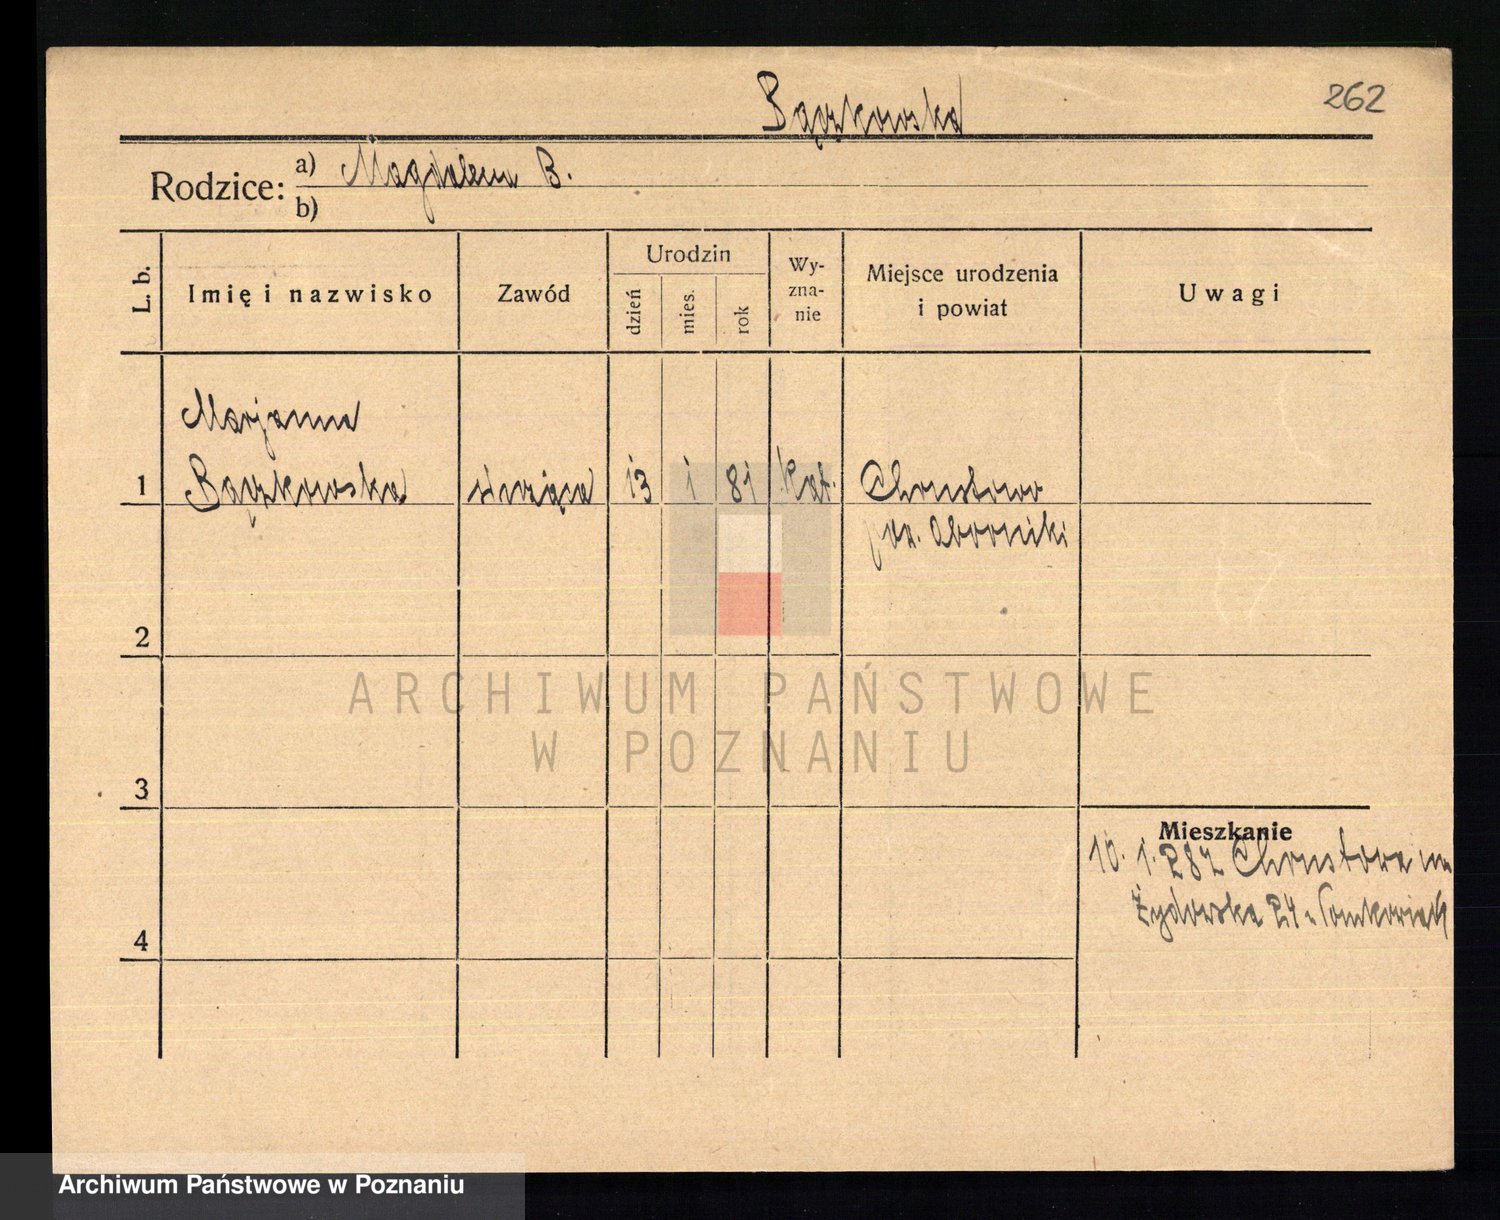 262
Bączkowska
Rodzice: a) Magdalena B.
b)
L. b.
Imię i nazwisko
Zawód
Urodzin
dzień
mies.
rok
Wy-
zna-
nie
Miejsce urodzenia
i powiat
Uwagi
Marjanna
1 Bączkowska służąca 13 1 81 Kat. Chrustowo
pow. Oborniki
2
3
4
Mieszkanie
10. 1. Chrustowa
Żydowska 24
ARCHIWUM PAŃSTWOWE
W POZNANIU
Archiwum Państwowe w Poznaniu